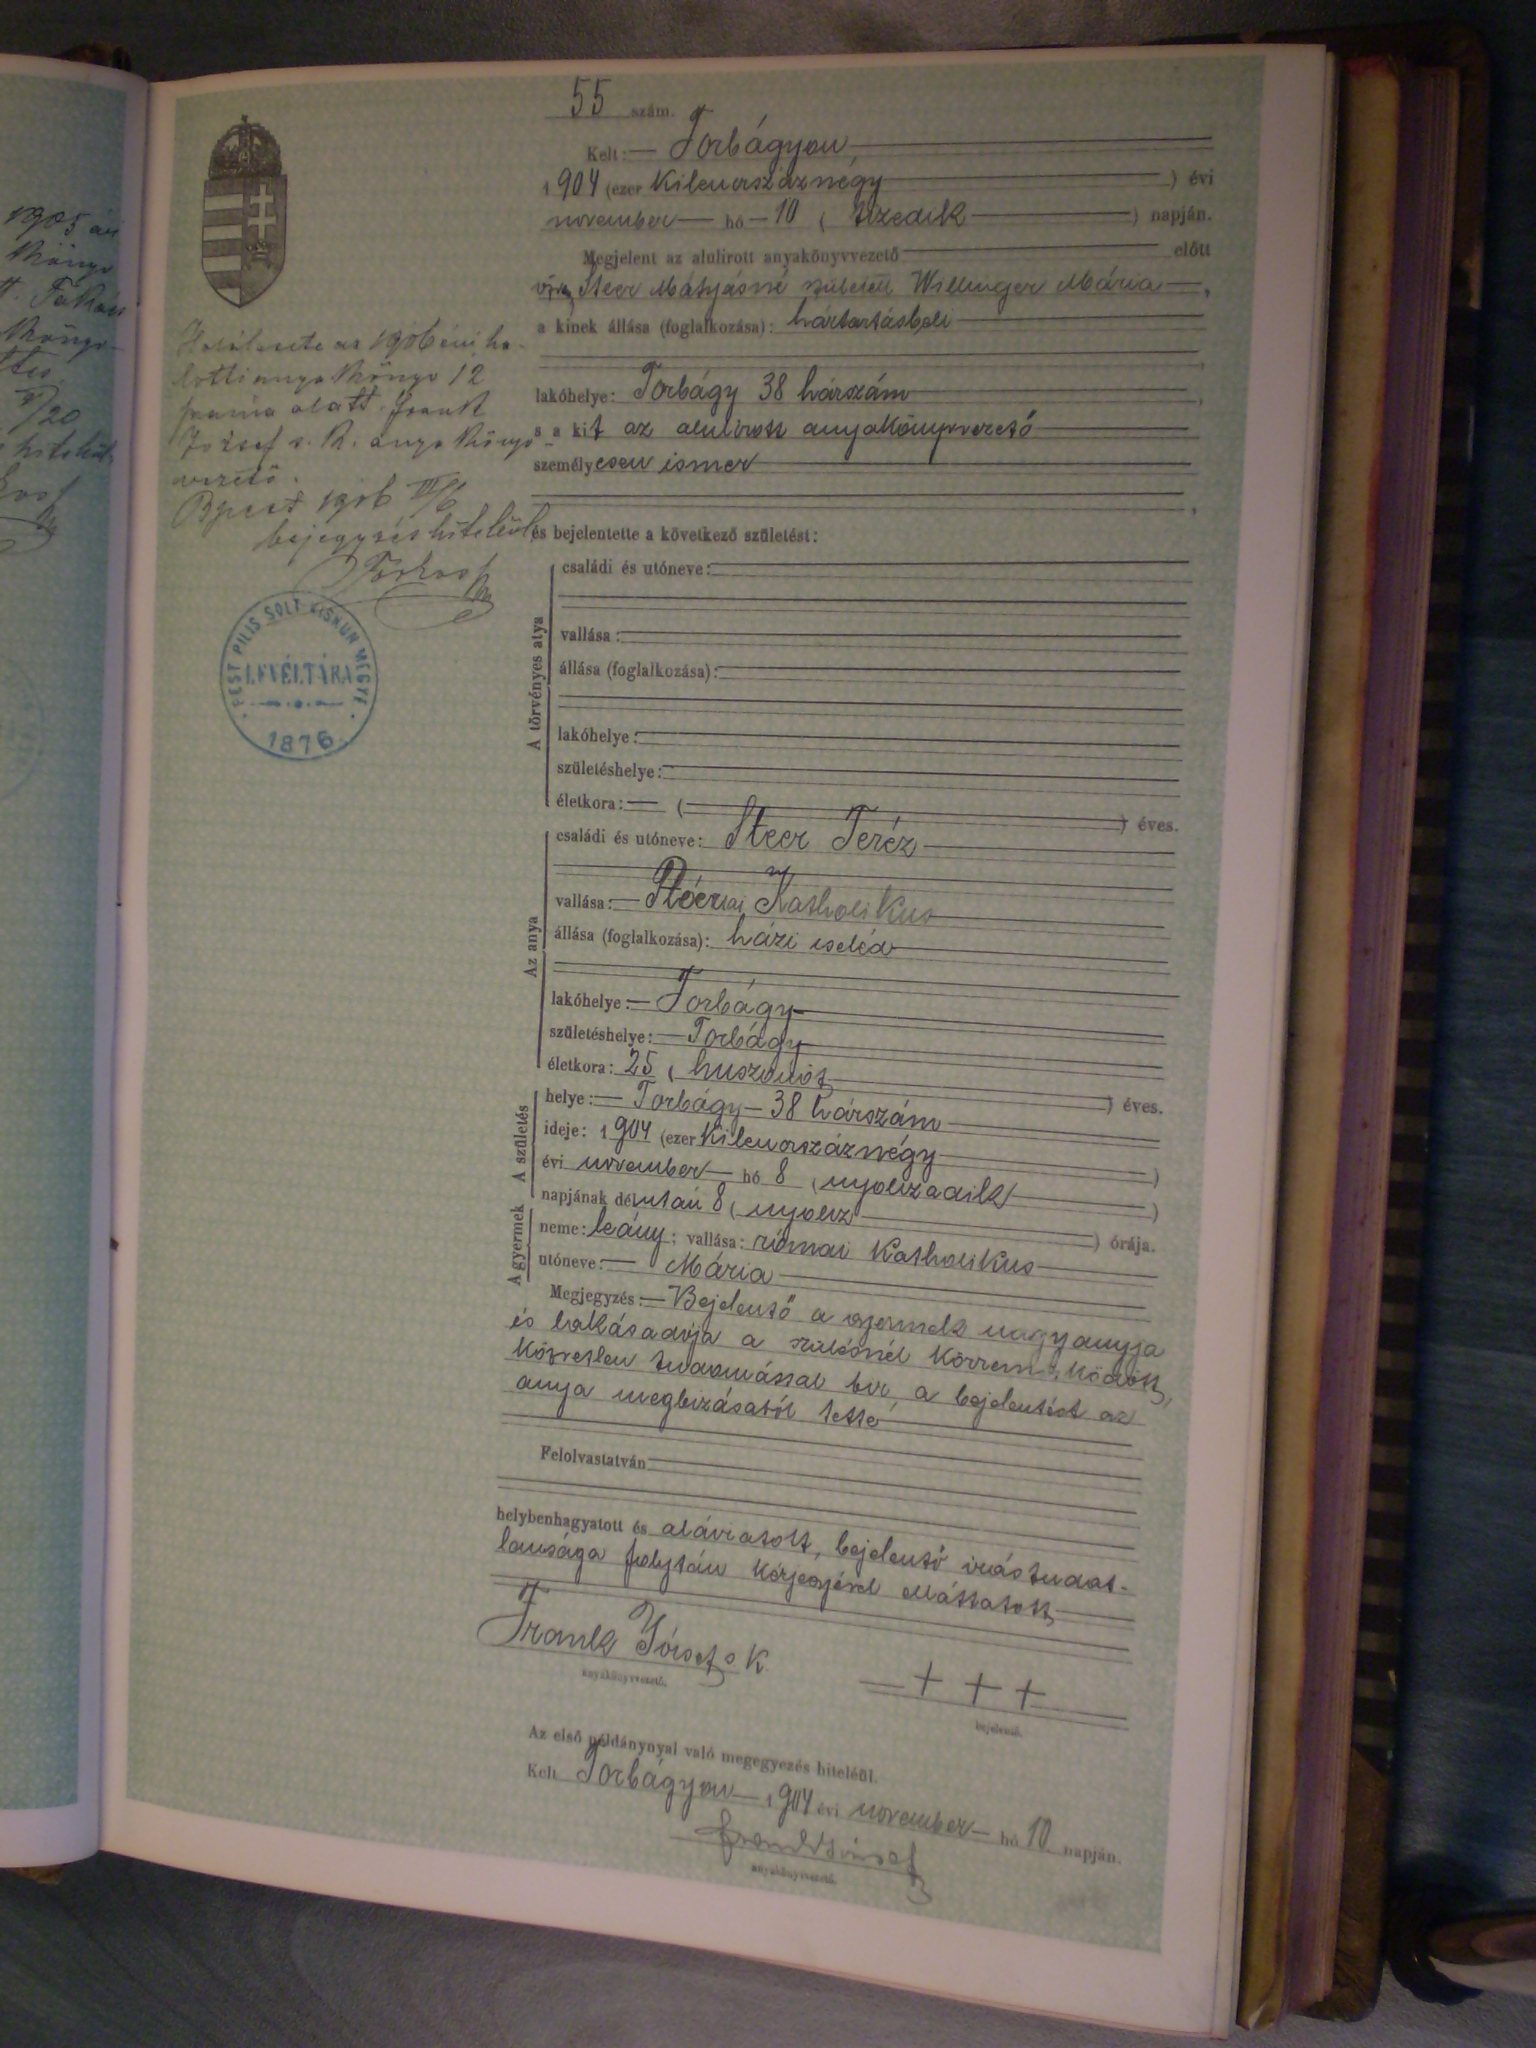 1905 évi
könyv
könyv
/20
hitelül
55 szám.
Kelt: Torbágyon
1904 (ezer kilencszáznégy) évi
november hó 10 (tizedik) napján.
Megjelent az alulirott anyakönyvvezető előtt
özv. Steer Mátyásné született Willinger Mária,
a kinek állása (foglalkozása): háztartásbeli
lakóhelye: Torbágy 38 házszám,
s a kit az alulirott anyakönyvvezető
személyesen ismer,
és bejelentette a következő születést:
Halálesete az 1906 évi ha-
lotti anyakönyv 12
száma alatt. Frank
József s. k. anyakönyv-
vezető.
Bpest 1906
bejegyzés hiteléül
PEST PILIS SOLT KISKUN MEGYE
LEVÉLTÁRA
1876
A törvényes atya
családi és utóneve:
vallása:
állása (foglalkozása):
lakóhelye:
születéshelye:
életkora: ( ) éves.
Az anya
családi és utóneve: Steer Teréz
vallása: Római Katholikus
állása (foglalkozása): házi cseléd
lakóhelye: Torbágy
születéshelye: Torbágy
életkora: 25 (huszonöt) éves.
A születés
helye: Torbágy 38 házszám
ideje: 1904 (ezer kilencszáznégy)
évi november hó 8 (nyolczadik)
napjának délután 8 (nyolcz) órája.
A gyermek
neme: leány; vallása: római Katholikus
utóneve: Mária
Megjegyzés: Bejelentő a gyermek nagyanyja
és lakásadója a szülésnél közreműködött,
közvetlen tudomással bir, a bejelentést az
anya megbizásából tette
Felolvastatván
helybenhagyatott és aláiratott, bejelentő irástudat-
lansága folytán kézjegyével elláttatott
Frank József s k
anyakönyvvezető.
+ + +
bejelentő.
Az első példánynyal való megegyezés hiteléül.
Kelt Torbágyon 1904 évi november hó 10 napján.
Frank József
anyakönyvvezető.